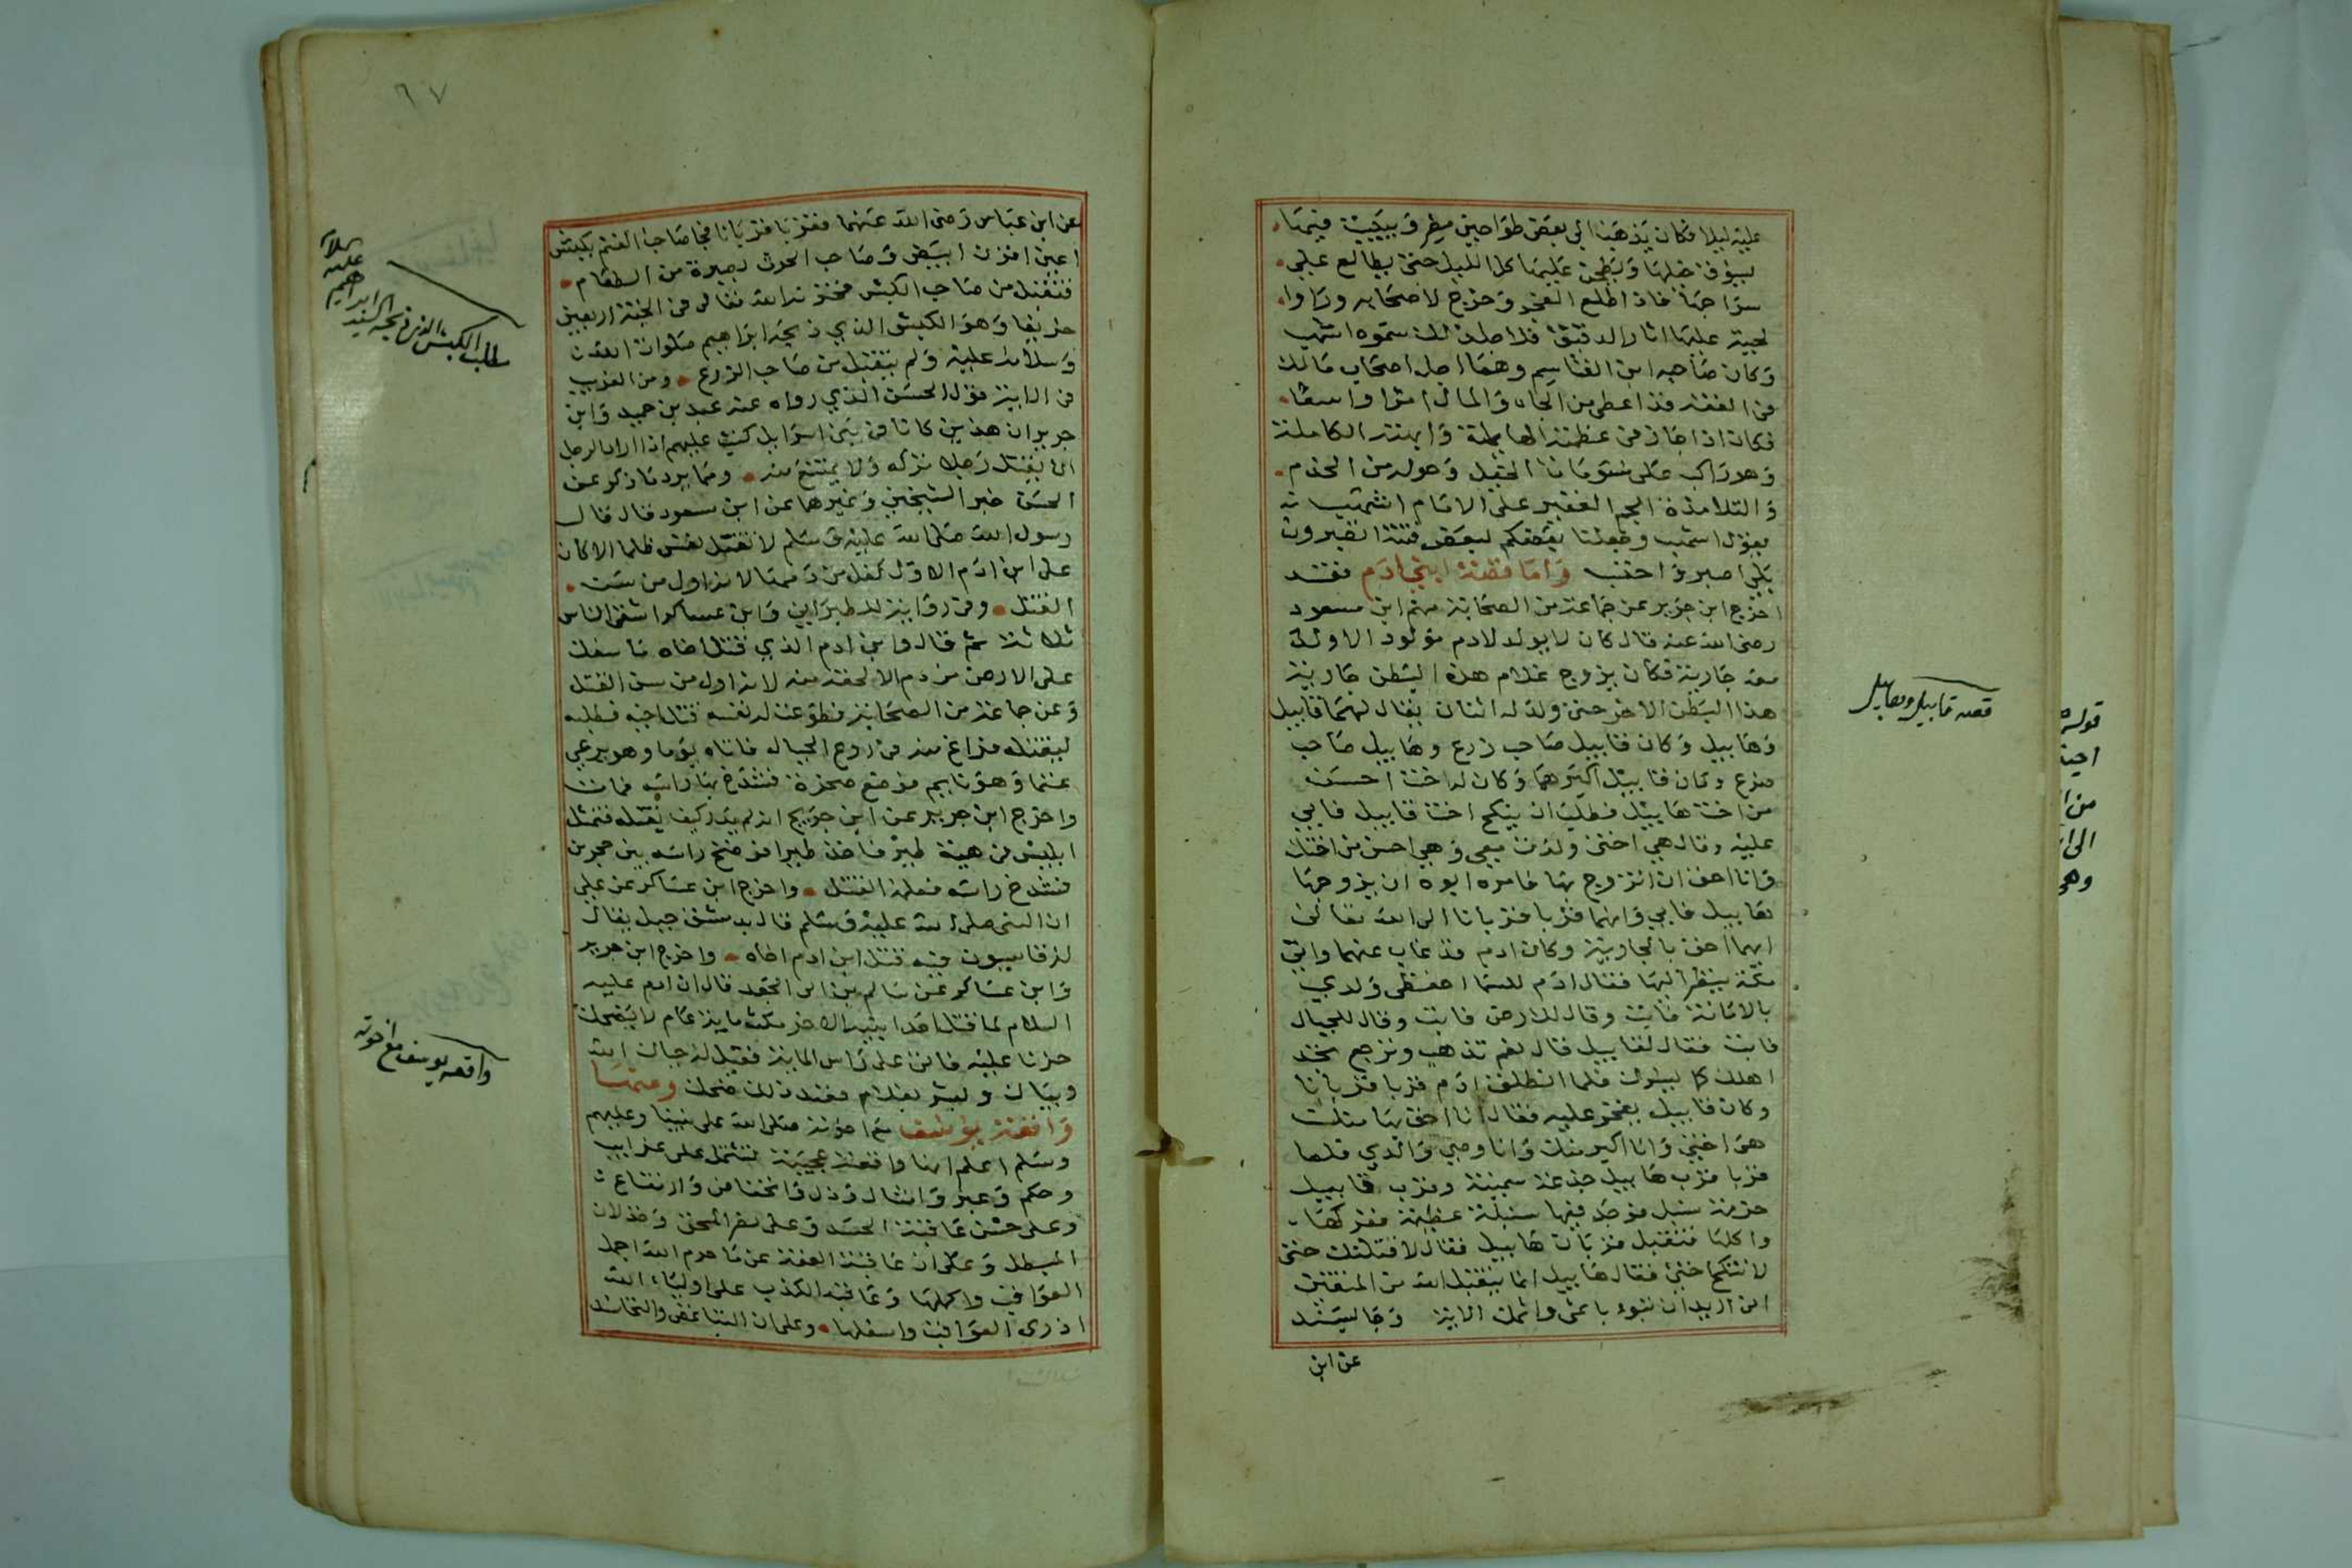 عليه ليلا فكان يذهب الى بعض طواحين مصر ويبيت فيها
يسوق خيلها ويطحن عليها كل الليل حتى يطالع على
سراجها فاذا طلع الفجر وخرج لاصحابه وراوا
لحيته عليها اثار الدقيق فلاجل ذلك سموه اشهب
وكان صاحبه ابن القاسم وهما اجل اصحاب مالك
في الفقه قد اعطي من الجاه والمال امرا واسعا
فكان اذا جاز في عظمته الهايلة وابهته الكاملة
وهو راكب على الخيل وحوله من الخدم
والتلامذة الجم الغفير على الامام اشهب
يقول اشهب وجعلنا بعضكم لبعض فتنة اتصبرون
بلى اصبر واحتسب واما قصة ابني ادم فقد
اخرج ابن جرير عن جماعة من الصحابة منهم ابن مسعود
رضى الله عنه قال كان لا يولد لادم مولود الا ولد
معه جارية فكان يزوج غلام هذا البطن جارية
هذا البطن الاخر حتى ولد له اثنان يقال لهما قابيل
وهابيل وكان قابيل صاحب زرع وهابيل صاحب
ضرع وكان قابيل اكبرهما وكان له اخت احسن
من اخت هابيل فطلب ان ينكح اخت قابيل فابى
عليه وقال هي اختى ولدت معي وهي احسن من اختك
وانا احق ان اتزوج بها فامره ابوه ان يزوجها
هابيل فابى وانهما قربا قربانا الى الله تعالى
ايهما احق بالجارية وكان ادم قد غاب عنهما واتى
مكة ينظر اليها فقال ادم للسما احفظى ولدي
بالامانة فابت وقال للارض فابت وقال للجبال
فابت فقال لقابيل قال نعم تذهب وترجع تجد
اهلك كما يسرك فلما انطلق ادم قربا قربانا
وكان قابيل يفخر عليه فقال انا احق بها منك
هى اختى وانا اكبر منك وانا وصى والدي فلما
قربا قرب هابيل جذعة سمينة وقرب قابيل
حزمة سنبل فوجد فيها سنبلة عظيمة ففركها
واكلها فتقبل قربان هابيل فقال لاقتلنك حتى
لا تنكح اختى فقال هابيل انما يتقبل الله من المتقين
انى اريد ان تبوء باثمى واثمك الاية وجا بسند
عن ابن
قصه قابيل وهابيل
قوله
٦٧
عن ابن عباس رضى الله عنهما فقربا قربانا فجا صاحب الغنم بكبش
اعين اقرن ابيض وصاحب الحرث بصبرة من الطعام
فتقبل من صاحب الكبش فخزنه الله تعالى في الجنة اربعين
خريفا وهو الكبش الذي ذبحه ابراهيم صلوات الله
وسلامه عليه ولم يتقبل من صاحب الزرع ومن الغريب
في الاية قول الحسن الذي رواه عنه عبد بن حميد وابن
جرير ان هذين كانا في بني اسرايل كتب عليهم اذا اراد الرجل
ان يقتل رجلا تركه ولا يمتنع منه ومما يرد ما ذكر عن
الحسن خبر الشيخين وغيرها عن ابن مسعود قال قال
رسول الله صلى الله عليه وسلم لا تقتل نفس ظلما الا كان
على ابن ادم الاول كفل من دمها لانه اول من سن
القتل وفي رواية للطبراني وابن عساكر اشقى الناس
ثلاثة ثم قال وابن ادم الذي قتل اخاه ما سفك
على الارض من دم الا لحقه منه لانه اول من سن القتل
وعن جماعة من الصحابة فطوعت له نفسه قتل اخيه فطلبه
ليقتله فراغ منه في روس الجبال فاتاه يوما وهو يرعى
غنما وهو نايم فرفع صخرة فشدخ بها راسه فمات
واخرج ابن جرير عن ابن جريج انه لم يدر كيف يقتله فتمثل
ابليس في هيئة طير فاخذ طيرا فرضخ راسه بين حجرين
فشدخ راسه فعلمه القتل واخرج ابن عساكر عن علي
ان النبى صلى الله عليه وسلم قال بدمشق جبل يقال
له قاسيون فيه قتل ابن ادم اخاه واخرج ابن جرير
وابن عساكر عن سالم بن ابى الجعد قال ان ادم عليه
السلام لما قتل احد ابنيه الاخر مكث ماية عام لا يضحك
حزنا عليه فاتى على راس الماية فقيل له حياك الله
وبياك وبشر بغلام فعند ذلك ضحك ومنها
واقعة يوسف مع اخوته صلى الله على نبينا وعليهم
وسلم اعلم انها واقعة عجيبة تشتمل على غرايب
وحكم وعبر وامثال وذل وانخفاض وارتفاع
وعلى عاقبة الحسد وعلى نصر المحق وخذلان
المبطل وعلى ان عاقبة العفة عن ما حرم الله اجمل
العواقب واكملها وعاقبة الكذب على اولياء الله
اذرى العواقب واسفلها وعلى ان التباغض والتحاسد
مطلب الكبش الذي ذبحه السيد ابراهيم
عليه السلام
واقعه يوسف مع اخوته